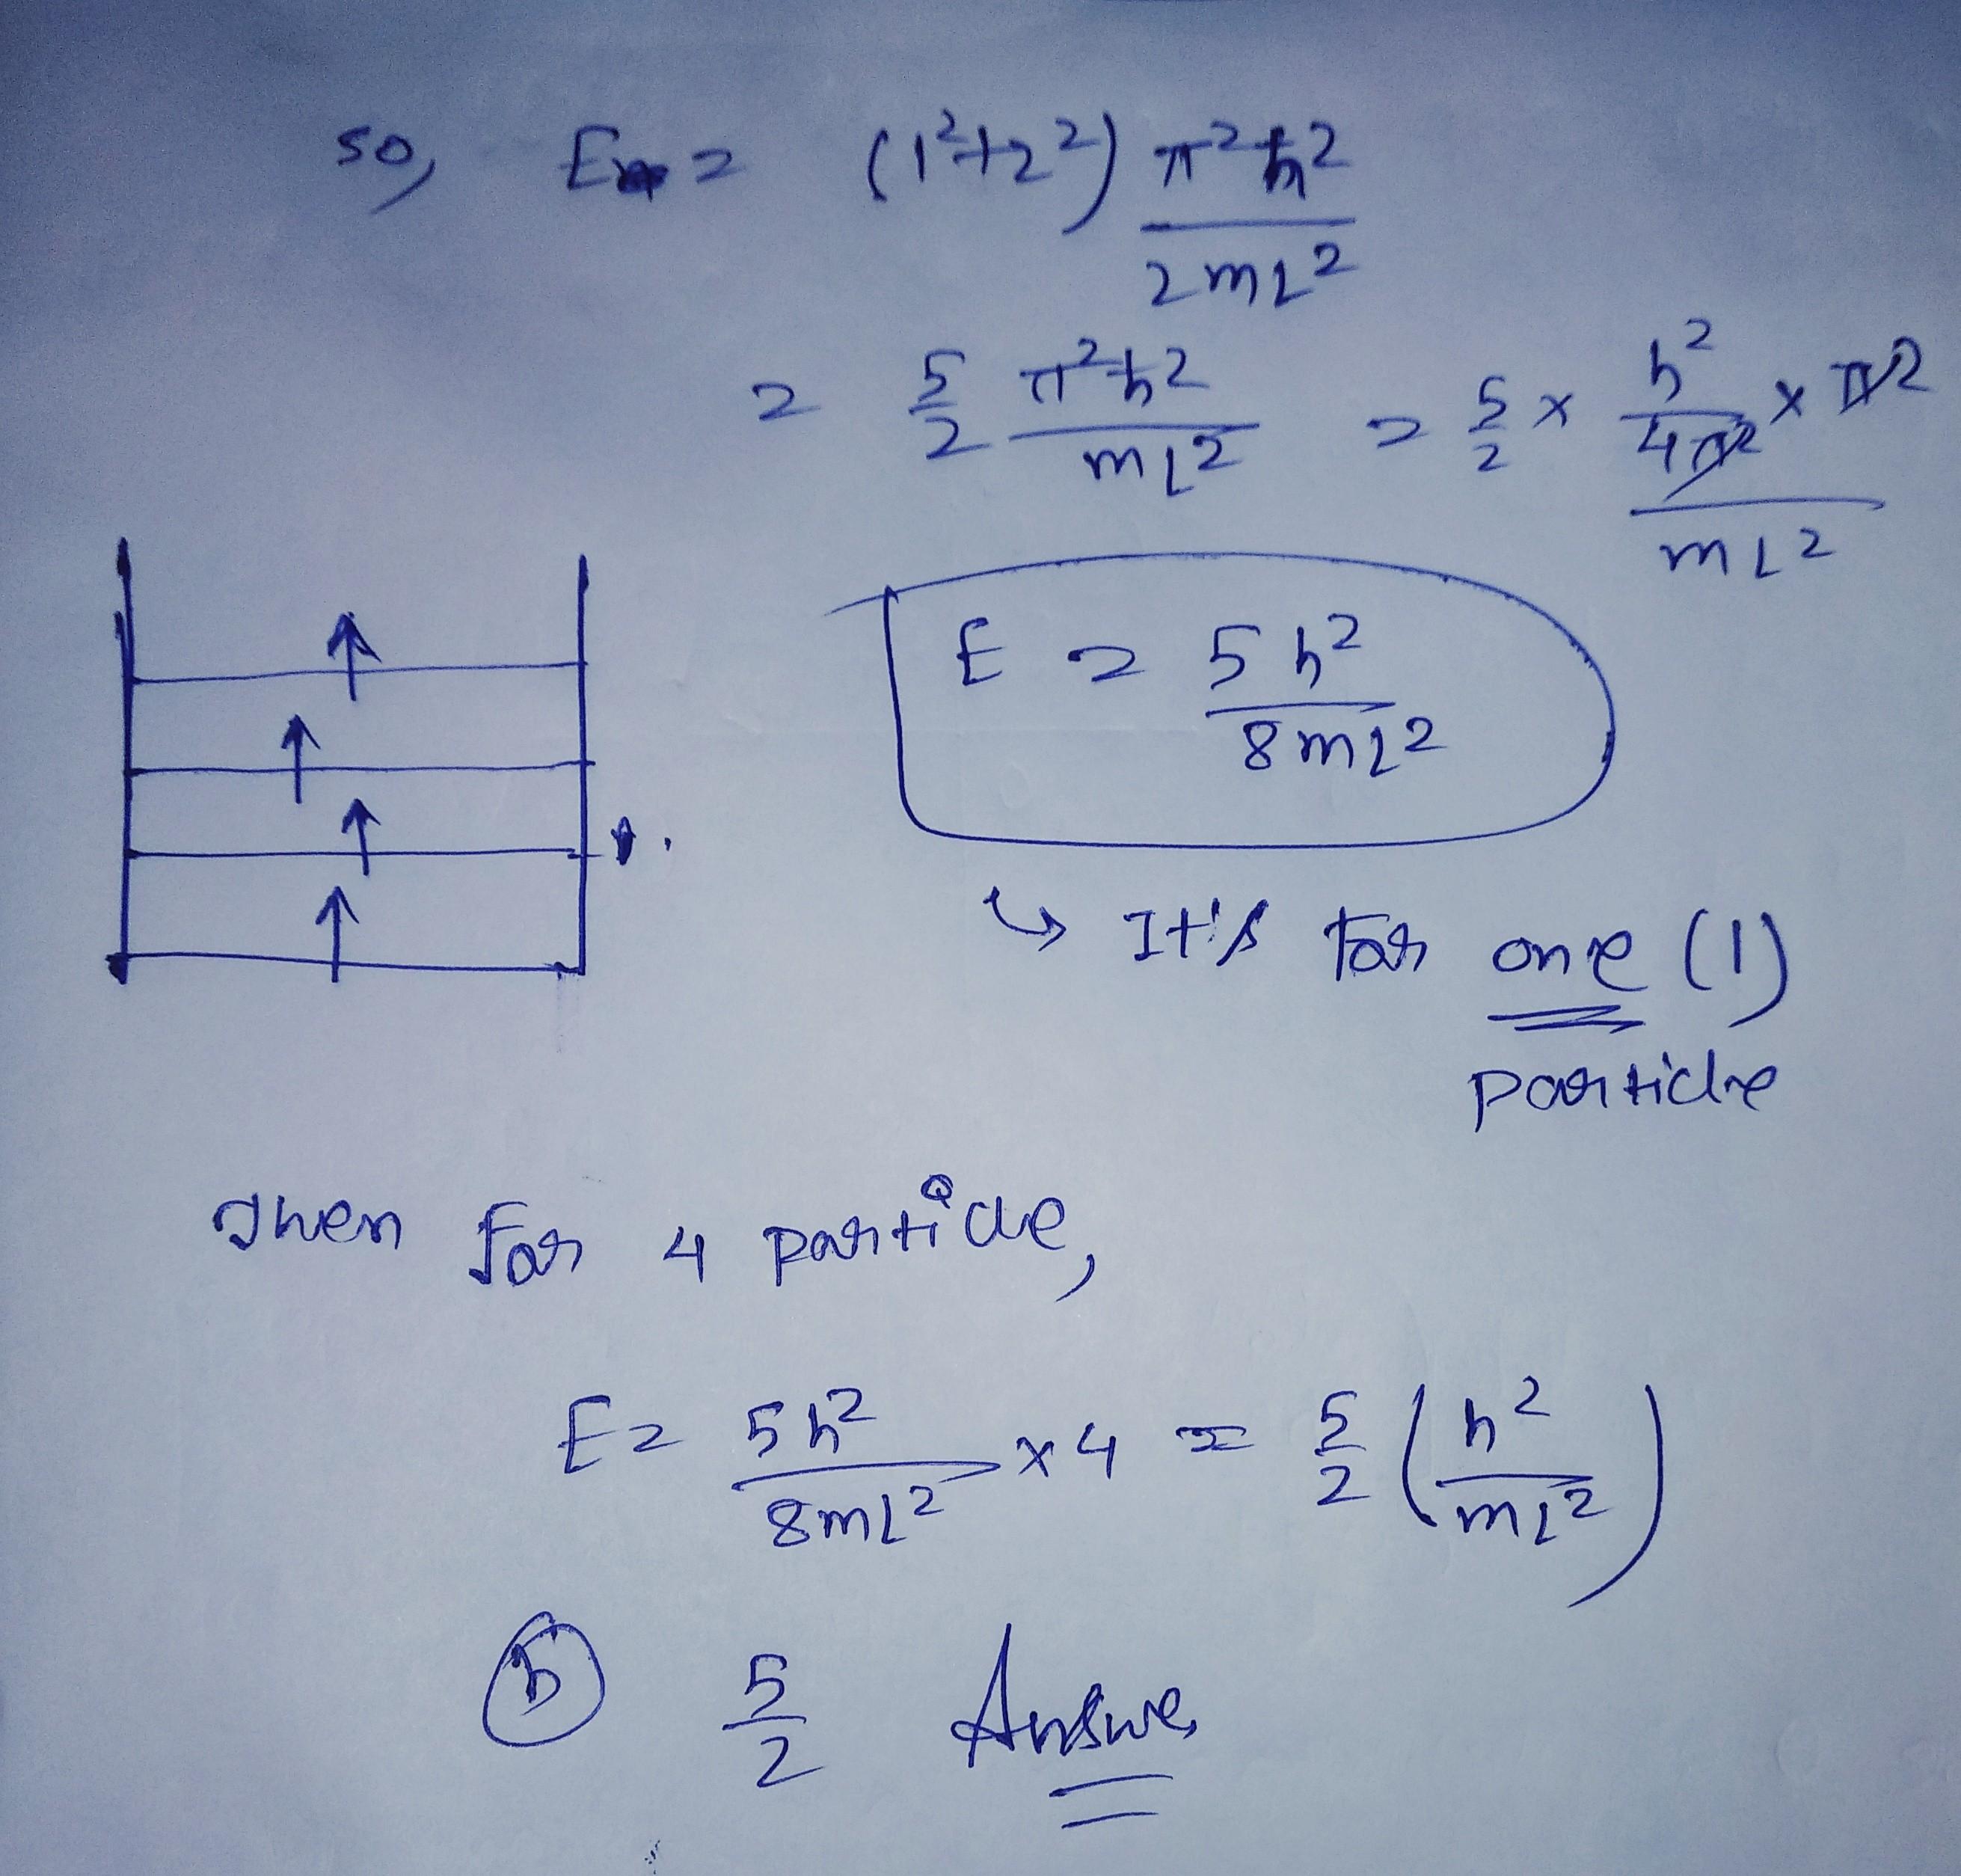 so, En = (1²+2²) π²ħ² / 2mL²
= 5/2 π²ħ² / mL² = 5/2 × h²/4π² × π² / mL²
E = 5h² / 8mL²
↳ It's for one (1)
particle
given for 4 particle,
E = 5h² / 8mL² × 4 = 5/2 (h² / mL²)
ⓑ 5/2 Answer